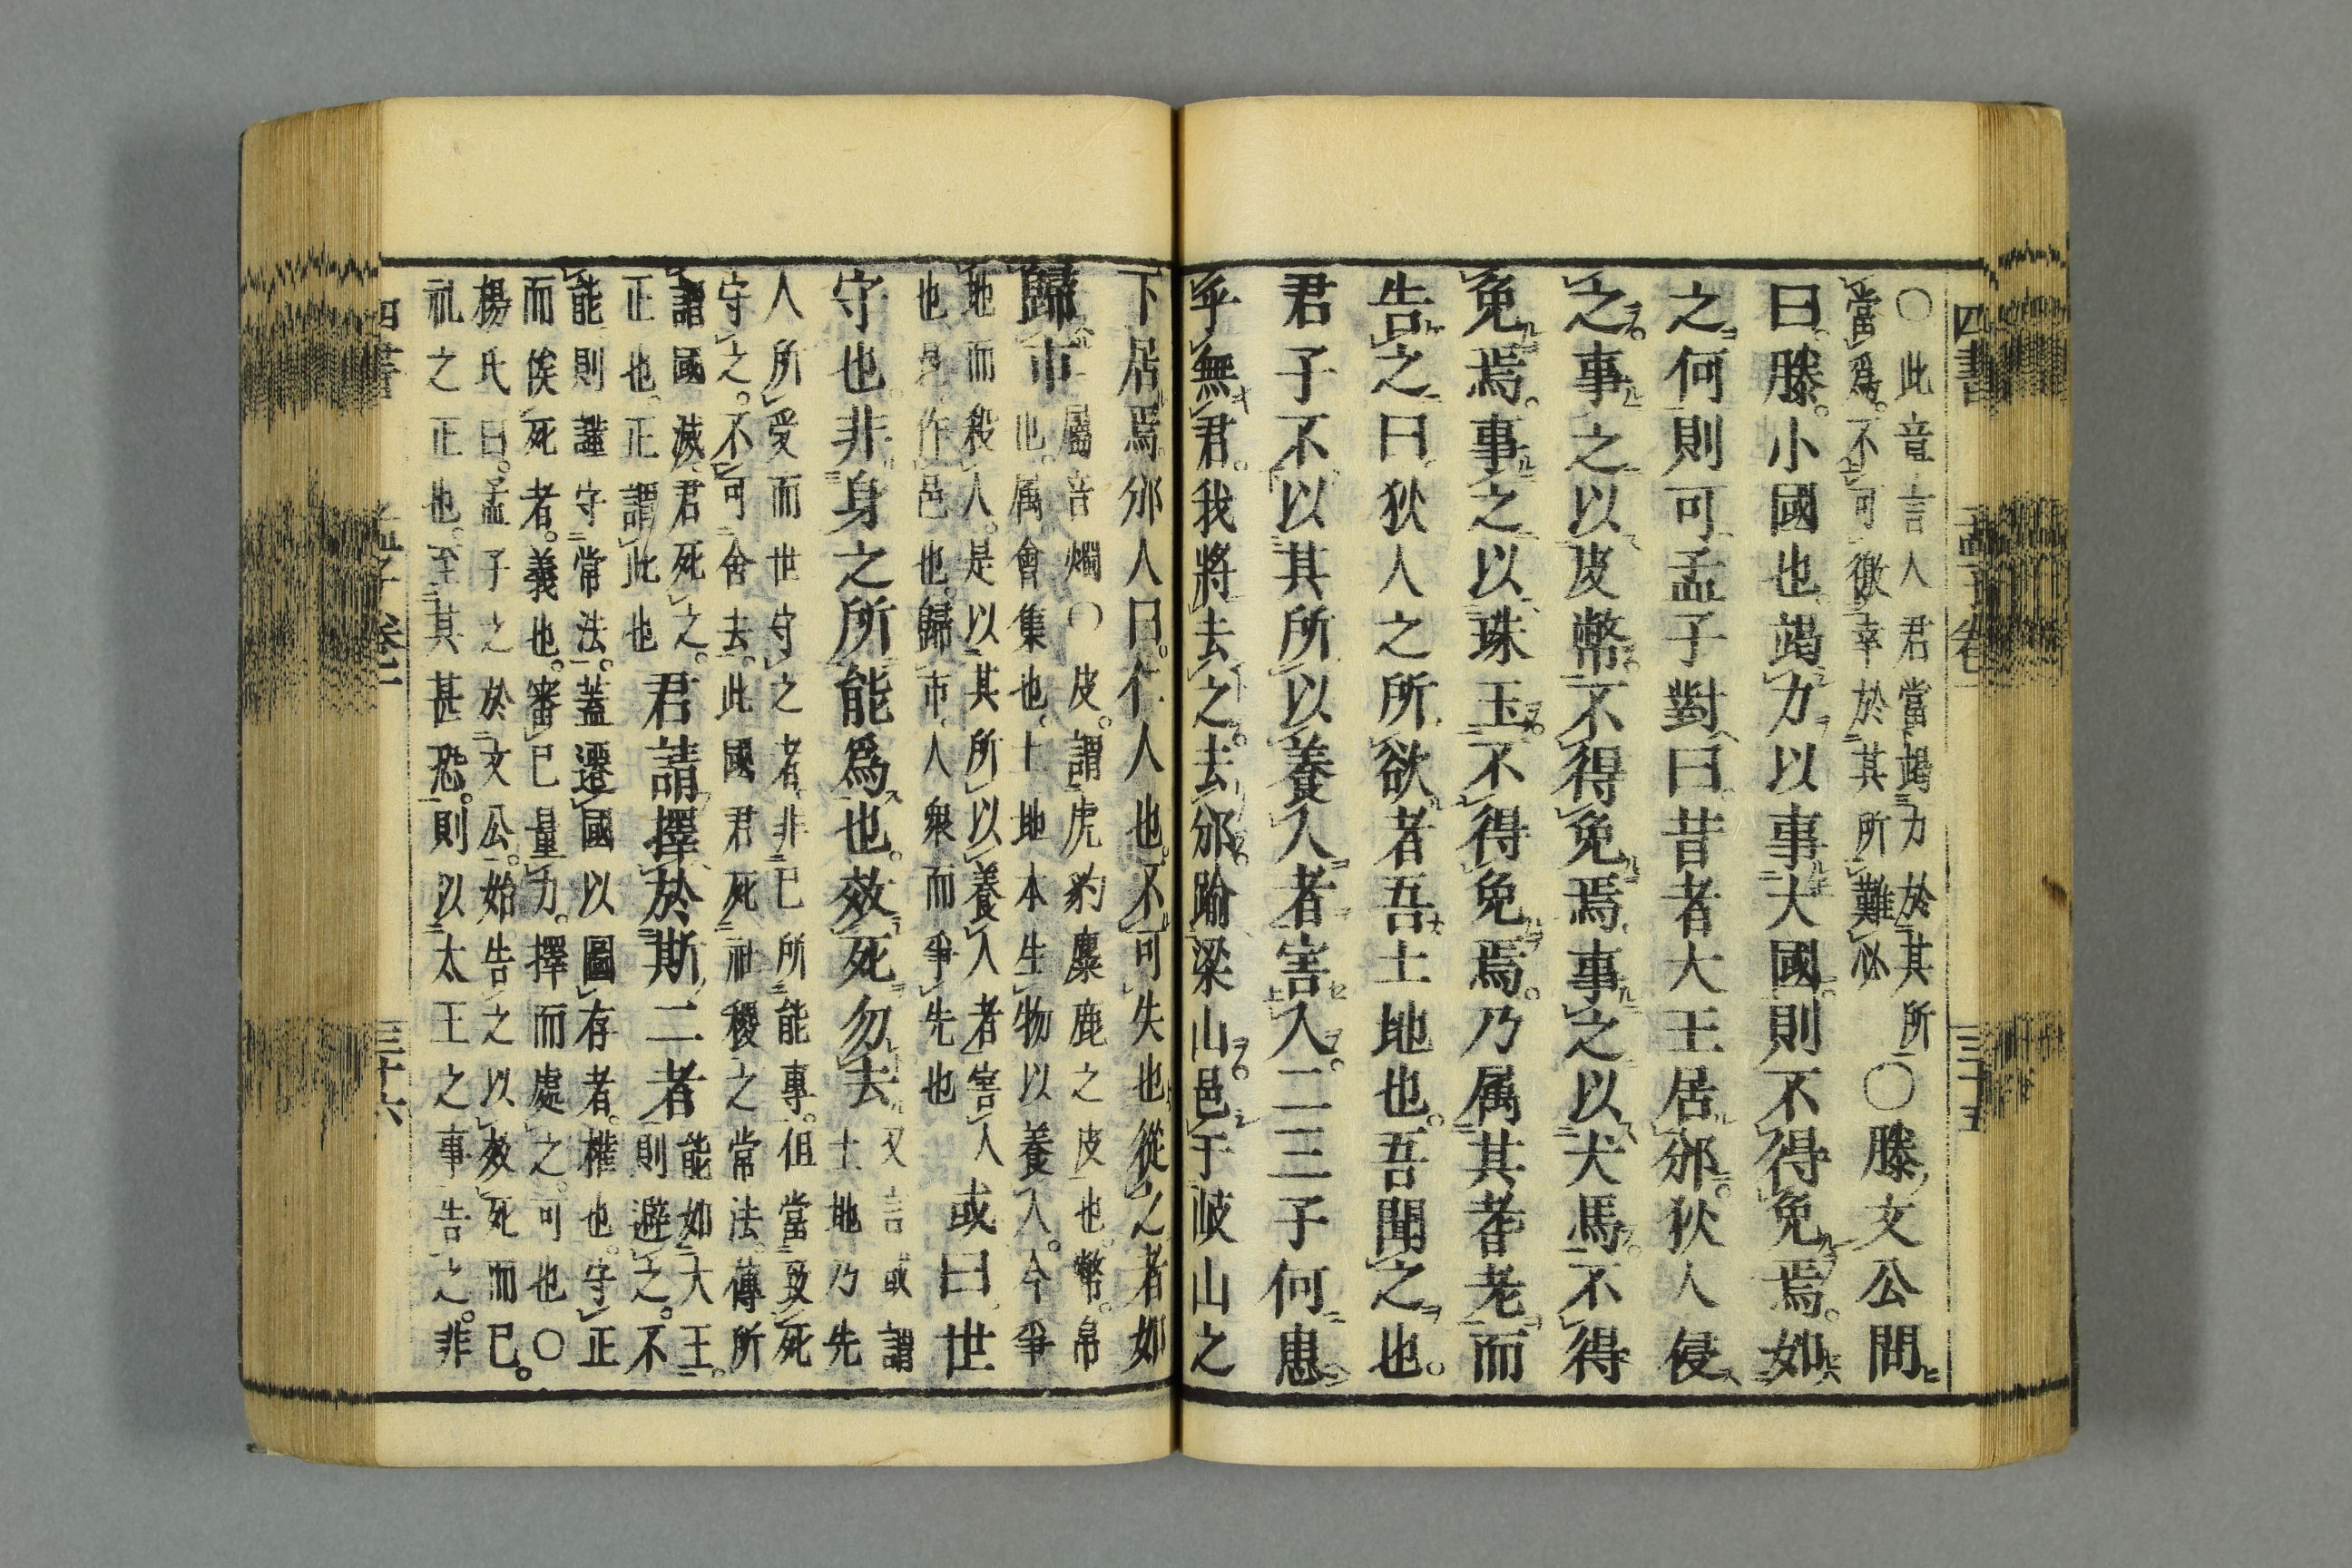 四書 孟子卷一 三十五
○此章言人君當竭力於其所
當爲。不可徼幸於其所難必
○滕文公問
曰。滕。小國也。竭力以事大國。則不得免焉。如
之何則可。孟子對曰。昔者大王居邠。狄人侵
之。事之以皮幣。不得免焉。事之以犬馬。不得
免焉。事之以珠玉。不得免焉。乃属其耆老而
告之曰。狄人之所欲者吾土地也。吾聞之也。
君子不以其所以養人者害人。二三子何患
乎無君。我將去之。去邠。踰梁山。邑于岐山之
下居焉。邠人曰。仁人也。不可失也。從之者如
歸市
屬音燭○皮。謂虎豹麋鹿之皮也。幣。帛
也。属會集也。土地本生物以養人。今爭
地而殺人。是以其所以養人者害人
也。邑。作邑也。歸市。人衆而爭先也
或曰。世
守也。非身之所能爲也。效死勿去
又言或謂
土地乃先
人所受而世守之者。非己所能專。但當致死
守之。不可舍去。此國君死社稷之常法。傳所
謂國滅。君死之。
正也。正謂此也
君請擇於斯二者
能如大王。
則避之。不
能則謹守常法。蓋遷國以圖存者。權也。守正
而俟死者。義也。審己量力。擇而處之。可也○
楊氏曰。孟子之於文公。始告之以效死而已。
礼之正也。至其甚恐。則以太王之事告之。非
四書 孟子卷一 三十六